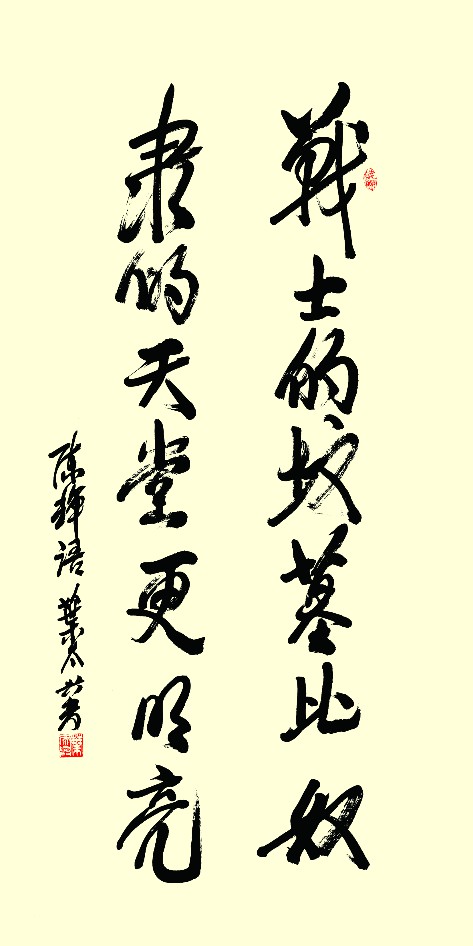 戰士的坟墓比奴
隶的天堂更明亮
陈辉语 葉